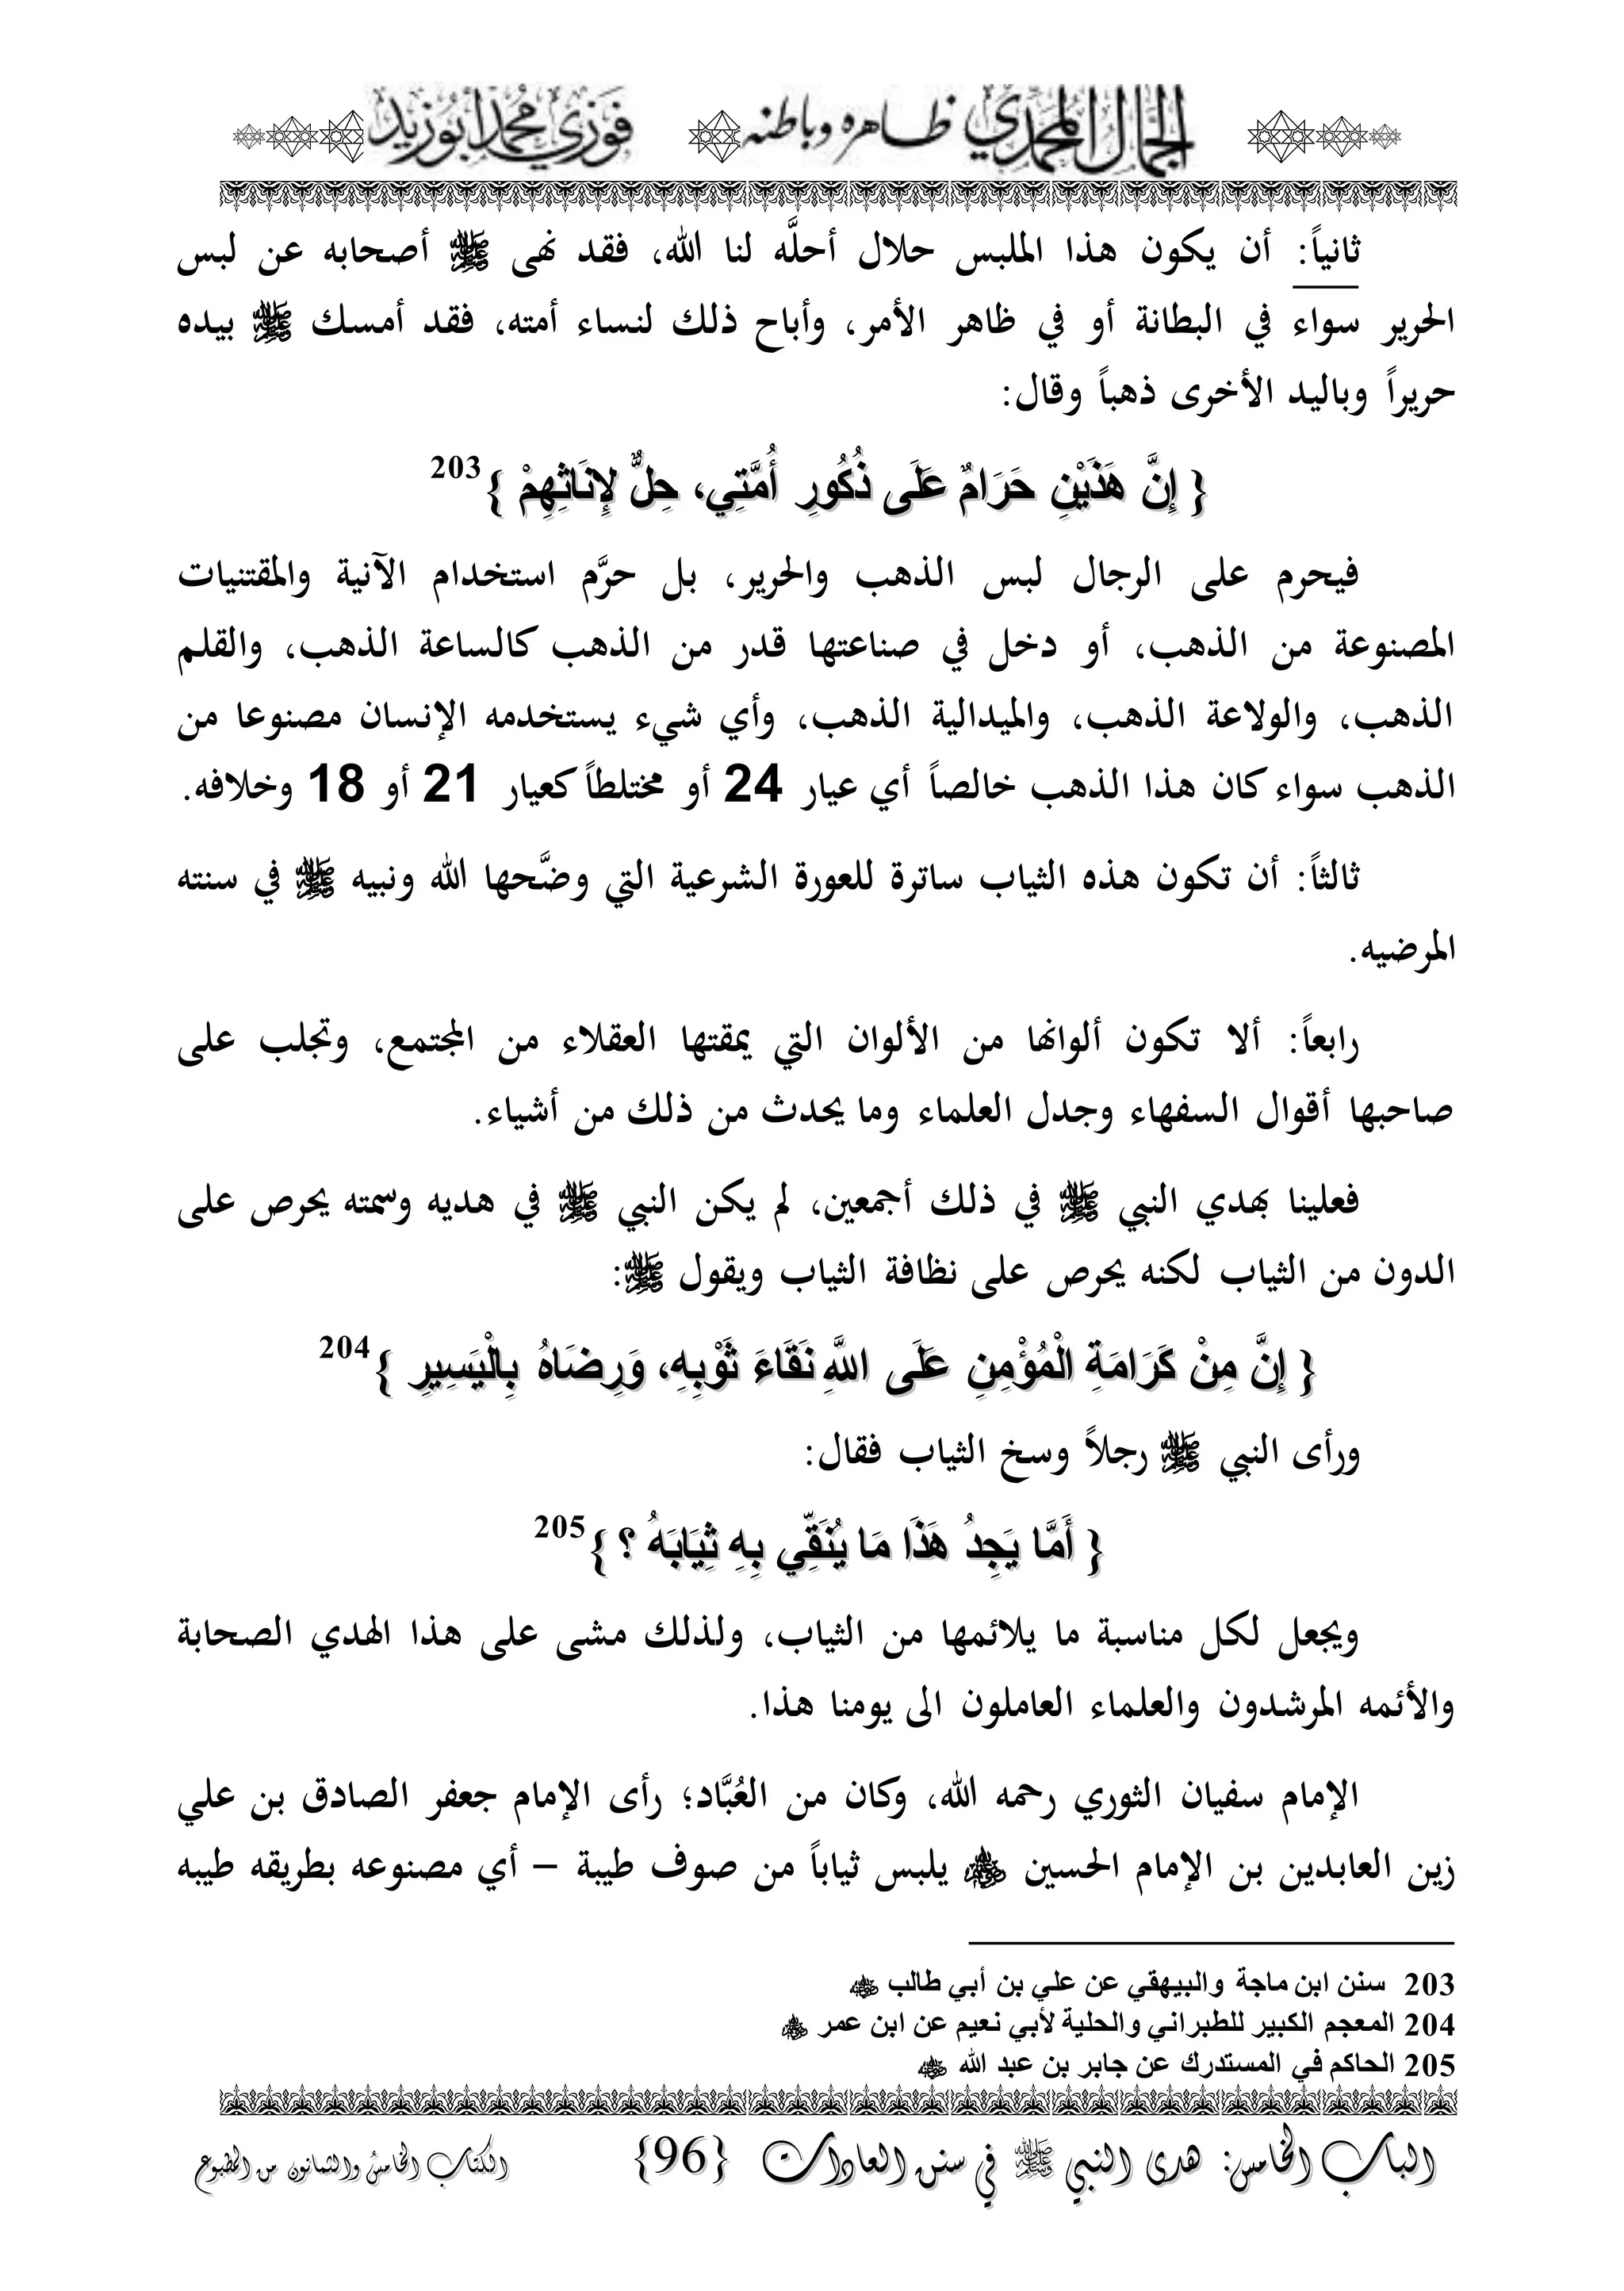 الجمال المحمدي ظاهره وباطنه فوزي محمد أبوزيد
ثانياً: أن يكون هذا الملبس حلال أحلَّه لنا الله، فقد نهى ﷺ أصحابه عن لبس
الحرير سواء في البطانة أو في ظاهر الأمر، وأباح ذلك لنساء أمته، فقد أمسك ﷺ بيده
حريراً وباليد الأخرى ذهباً وقال:
{ إِنَّ هَذَيْنِ حَرَامٌ عَلَى ذُكُورِ أُمَّتِي، حِلٌّ لِإِنَاثِهِمْ }203
فيحرم على الرجال لبس الذهب والحرير، بل حرَّم استخدام الآنية والمقتنيات
المصنوعة من الذهب، أو دخل في صناعتها قدر من الذهب كالساعة الذهب، والقلم
الذهب، والولاعة الذهب، والميدالية الذهب، وأي شيء يستخدمه الإنسان مصنوعا من
الذهب سواء كان هذا الذهب خالصاً أي عيار 24 أو مختلطاً كعيار 21 أو 18 وخلافه.
ثالثاً: أن تكون هذه الثياب ساترة للعورة الشرعية التي وضَّحها الله ونبيه ﷺ في سنته
المرضيه.
رابعاً: ألا تكون ألوانها من الألوان التي يمقتها العقلاء من المجتمع، وتجلب على
صاحبها أقوال السفهاء وجدل العلماء وما يحدث من ذلك من أشياء.
فعلينا بهدي النبي ﷺ في ذلك أجمعين، لم يكن النبي ﷺ في هديه وسمته يحرص على
الدون من الثياب لكنه يحرص على نظافة الثياب ويقول ﷺ:
{ إِنَّ مِنْ كَرَامَةِ الْمُؤْمِنِ عَلَى اللَّهِ نَقَاءَ ثَوْبِهِ، وَرِضَاهُ بِالْيَسِيرِ }204
ورأى النبي ﷺ رجلاً وسخ الثياب فقال:
{ أَمَّا يَجِدُ هَذَا مَا يُنَقِّي بِهِ ثِيَابَهُ ؟ }205
ويجعل لكل مناسبة ما يلائمها من الثياب، ولذلك مشى على هذا الهدي الصحابة
والأئمه المرشدون والعلماء العاملون الى يومنا هذا.
الإمام سفيان الثوري رحمه الله، وكان من العُبَّاد؛ رأى الإمام جعفر الصادق بن علي
زين العابدين بن الإمام الحسين ؓ يلبس ثياباً من صوف طيبة – أي مصنوعه بطريقه طيبه
203 سنن ابن ماجة والبيهقي عن علي بن أبي طالب ؓ
204 المعجم الكبير للطبراني والحلية لأبي نعيم عن ابن عمر ؓ
205 الحاكم في المستدرك عن جابر بن عبد الله ؓ
الباب الخامس: هدى النبي ﷺ في سنن العادات {96} الكتاب الخامسُ والثمانون من المطبوع